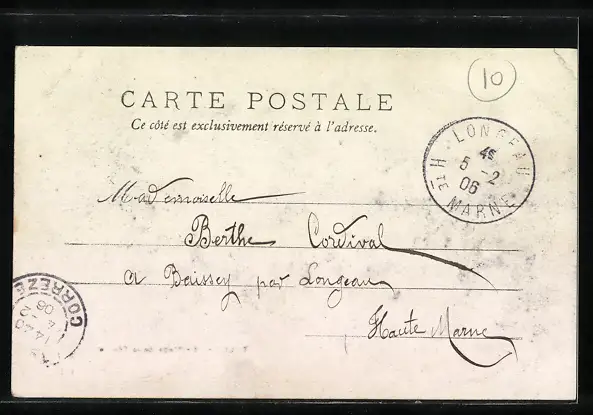 10
CARTE POSTALE
Ce côté est exclusivement réservé à l'adresse.
LONGEAU
4E
5 -2
06
HTE MARNE
Mademoiselle
Berthe Cordival
a Baissey par Longeau
Haute Marne
CORREZE
1440
4 -2
06